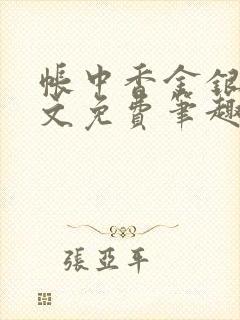 帳中香金銀
文免費筆趣
張亞平